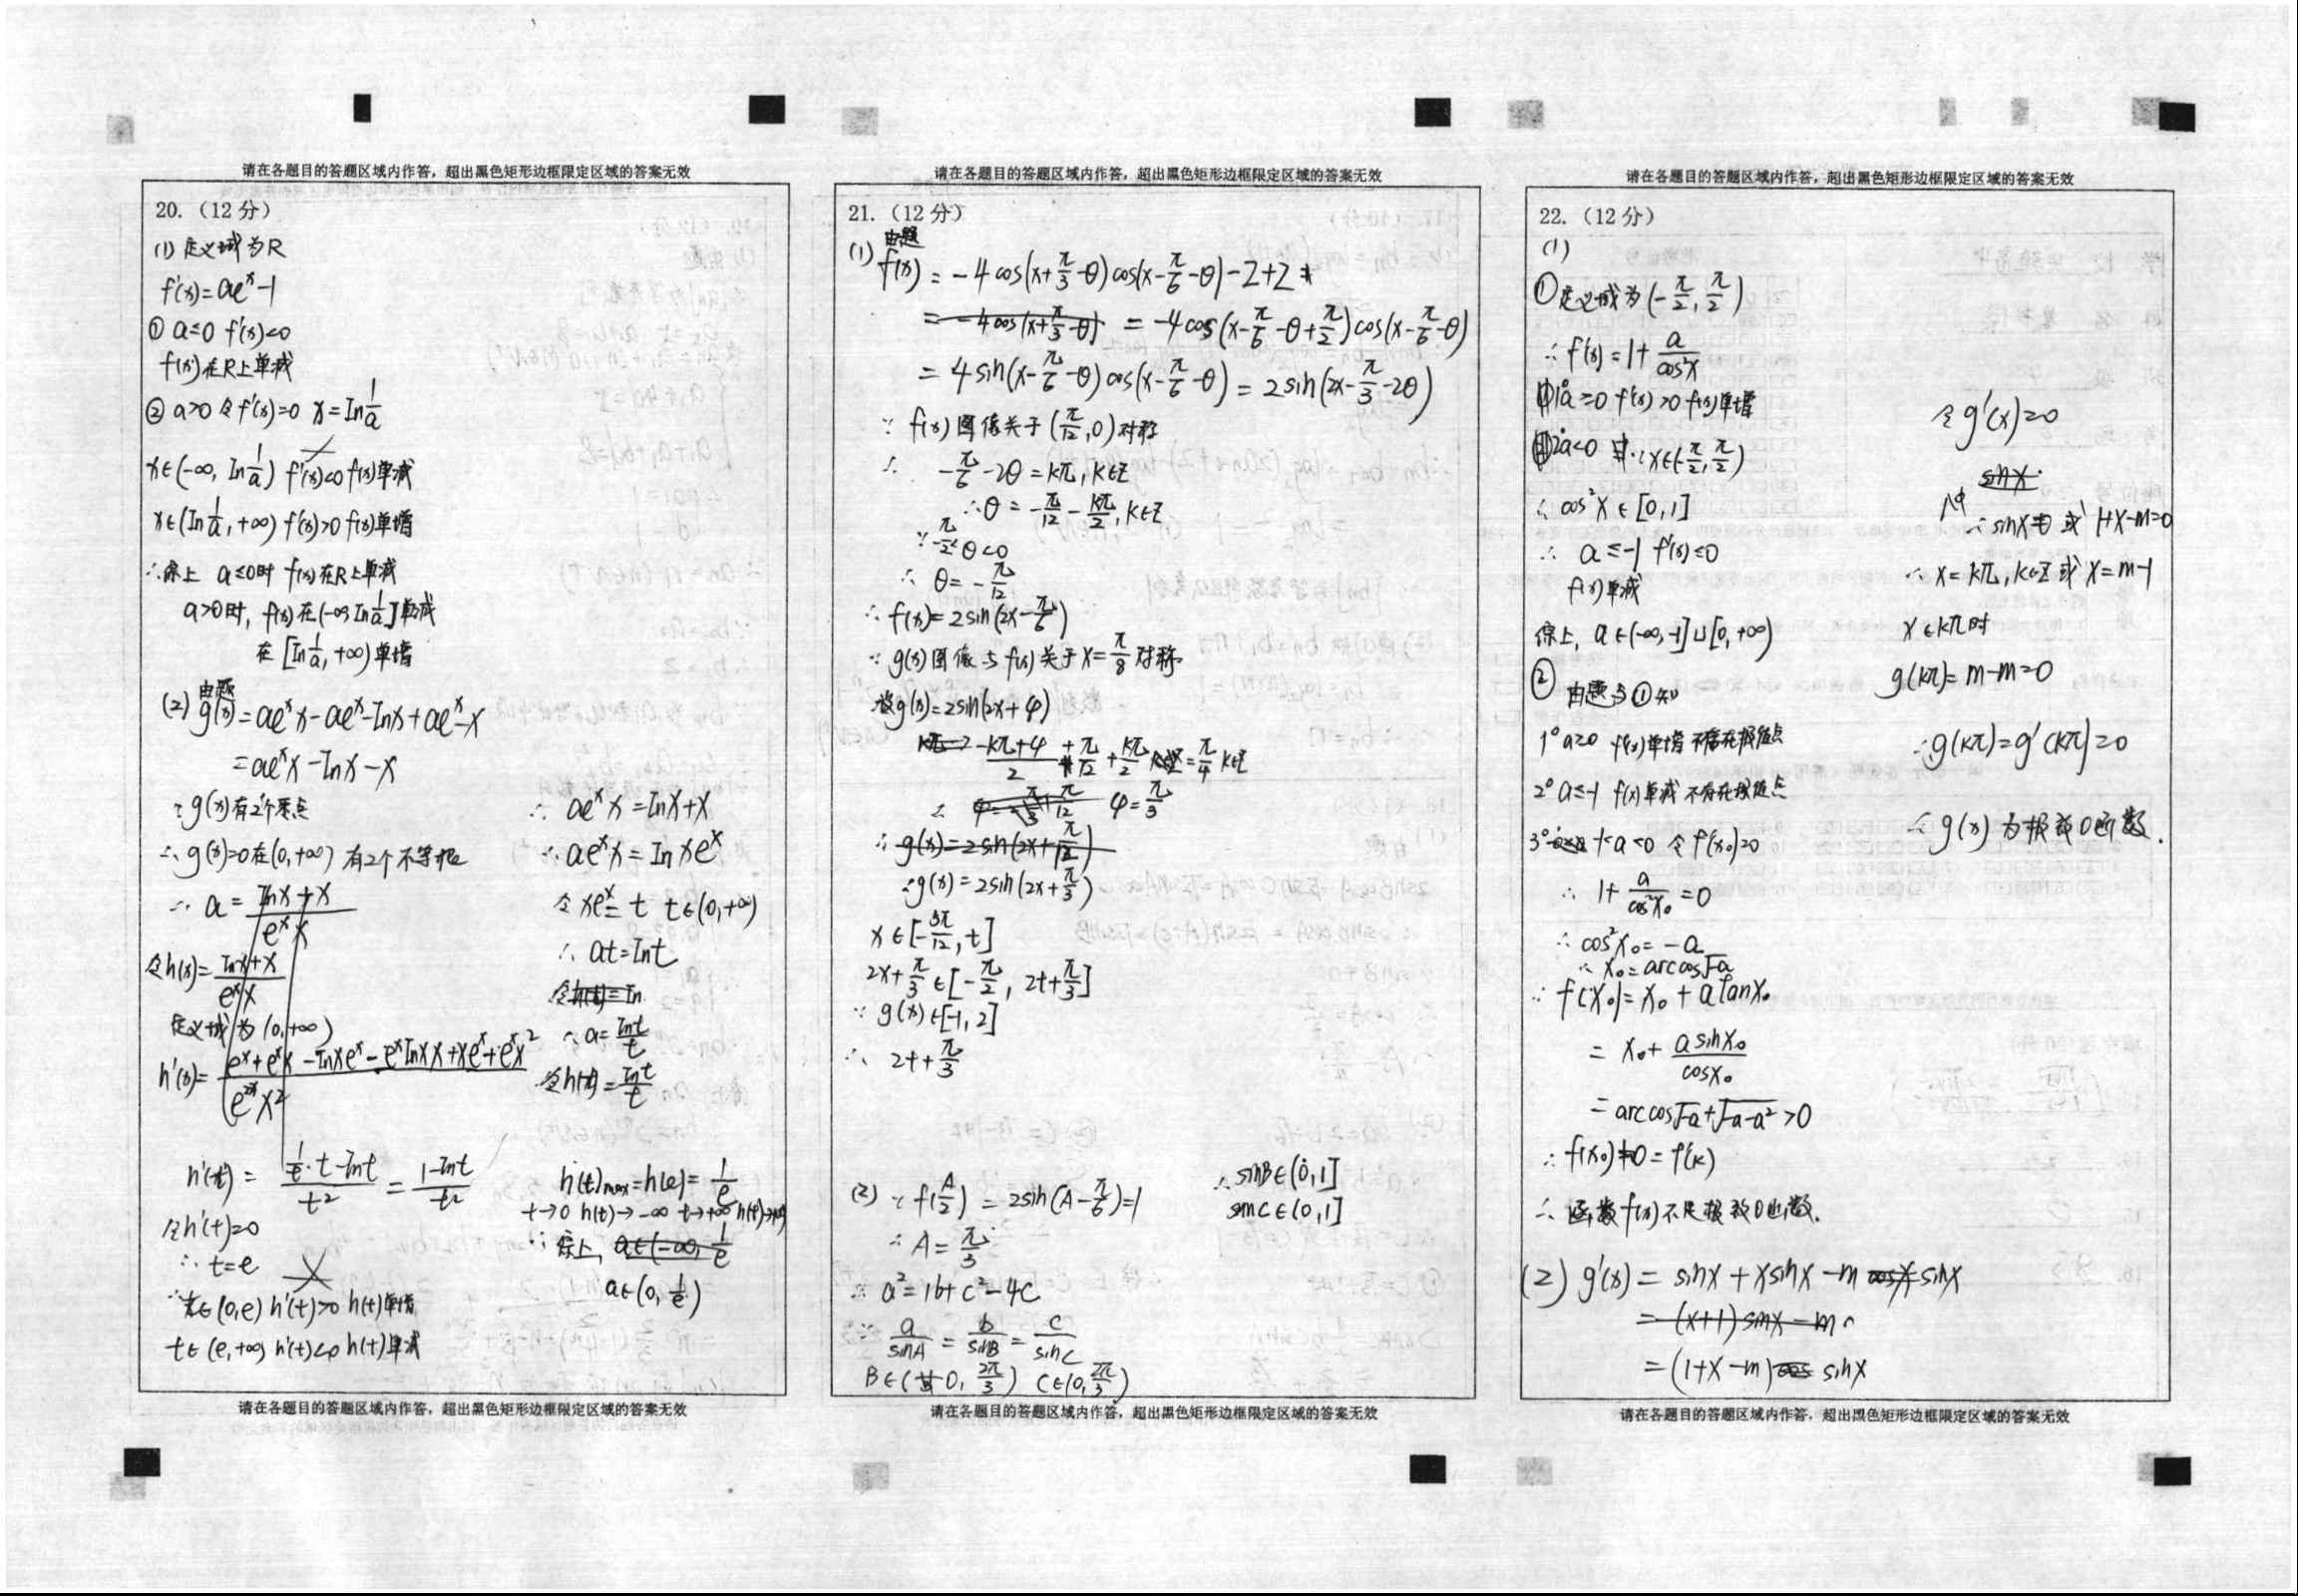 请在各题目的答题区域内作答，超出黑色矩形边框限定区域的答案无效
20.（12 分）
(1) 定义域为R
f'(x)=ae^x-1
① a≤0 f'(x)<0
f(x)在R上单减
② a>0 令f'(x)=0 x=ln 1/a
x∈(-∞, ln 1/a) f'(x)<0 f(x)单减
x∈(ln 1/a, +∞) f'(x)>0 f(x)单增
∴综上 a≤0时 f(x)在R上单减
a>0时, f(x)在(-∞ ln 1/a]单减
在[ln 1/a, +∞)单增
(2) 由题
g(x)=ae^x x-ae^x-lnx+ae^x-x
=ae^x x-lnx-x
∵g(x)有2个零点
∴g(x)=0在(0,+∞) 有2个不等根
∴ a= (lnx+x)/(e^x x)
令h(x)= (lnx+x)/(e^x x)
定义域为(0,+∞)
h'(x)= (e^x+e^x x-lnxe^x-e^x lnx x+xe^x+e^x x^2)/(e^{2x} x^2)
∴ ae^x x=lnx+x
∴ae^x x=ln xe^x
令xe^x=t t∈(0,+∞)
∴ at=lnt
令h(t)=ln
∴a= lnt/t
令h(t)= lnt/t
h'(t)= (1/t·t-lnt)/t^2 = (1-lnt)/t^2
令h'(t)=0
∴t=e
∴t∈(0,e) h'(t)>0 h(t)单增
t∈(e,+∞) h'(t)<0 h(t)单减
h(t)max=h(e)= 1/e
t→0 h(t)→-∞ t→+∞ h(t)→
∴综上, a∈(-∞, 1/e
a∈(0, 1/e)
请在各题目的答题区域内作答，超出黑色矩形边框限定区域的答案无效
请在各题目的答题区域内作答，超出黑色矩形边框限定区域的答案无效
21.（12 分）
(1) 由题
f(x)=-4cos(x+π/3-θ)cos(x-π/6-θ)-2+2
=-4cos(x+π/3-θ) =-4cos(x-π/6-θ+π/2)cos(x-π/6-θ)
=4sin(x-π/6-θ)cos(x-π/6-θ)=2sin(2x-π/3-2θ)
∵ f(x)图像关于(π/12,0)对称
∴ -π/6-2θ=kπ, k∈Z
∴θ=-π/12-kπ/2, k∈Z
∵-π/2<θ<0
∴ θ=-π/12
∴f(x)=2sin(2x-π/6)
∵g(x)图像与f(x)关于x=π/8对称
设g(x)=2sin(2x+φ)
φ=π/3
∴g(x)=2sin(2x+π/12)
∴g(x)=2sin(2x+π/3)
x∈[-5π/12, t]
2x+π/3∈[-π/2, 2t+π/3]
∵ g(x)∈[-1,2]
∴ 2t+π/3
(2) ∵f(A/2)=2sin(A-π/6)=1
∴A=π/3
∴ a^2=16+c^2-4c
∵ a/sinA=b/sinB=c/sinC
B∈(0, 2π/3) C∈(0, 2π/3)
∴sinB∈(0,1]
sinC∈(0,1]
请在各题目的答题区域内作答，超出黑色矩形边框限定区域的答案无效
请在各题目的答题区域内作答，超出黑色矩形边框限定区域的答案无效
22.（12 分）
(1)
①定义域为(-π/2, π/2)
∴f'(x)=1+a/cos^2x
1°a≥0 f'(x)>0 f(x)单增
2°a<0 ∵x∈(-π/2, π/2)
∴ cos^2x∈[0,1]
∴ a≤-1 f'(x)≤0
f(x)单减
综上, a∈(-∞,-1]∪[0,+∞)
② 由题与①知
1° a≥0 f(x)单增 不存在极值点
2° a≤-1 f(x)单减 不存在极值点
3° -1<a<0 令f'(x₀)=0
∴ 1+a/cos^2x₀=0
∴cos^2x₀=-a
∴x₀=arccos√-a
∵f(x₀)=x₀+atanx₀
=x₀+ asinx₀/cosx₀
=arccos√-a+√-a-a^2>0
∴f(x₀)≠0=f'(x)
∴ 函数f(x)不是极致0函数.
(2) g'(x)=sinx+xsinx-m cosx sinx
=(x+1)sinx-m
=(1+x-m)cos sinx
令g'(x)=0
sinx
∴sinx=0 或 1+x-m=0
∴ x=kπ, k∈Z 或 x=m-1
x∈kπ时
g(kπ)=m-m=0
∴g(kπ)=g'(kπ)=0
∴g(x)为极致0函数.
请在各题目的答题区域内作答，超出黑色矩形边框限定区域的答案无效